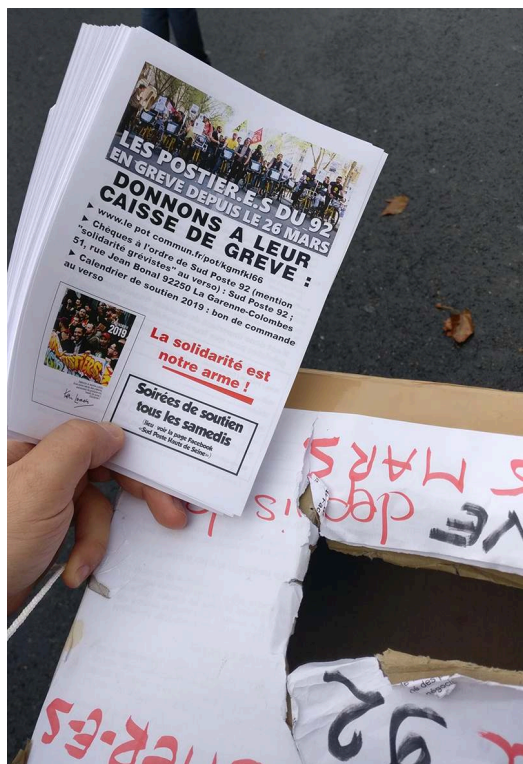 LES POSTIER.E.S DU 92
EN GREVE DEPUIS LE 26 MARS
DONNONS A LEUR
CAISSE DE GREVE :
www.le pot commun.fr/pot/kgmfkl66
Chèques à l'ordre de Sud Poste 92 (mention
"solidarité grévistes" au verso) : Sud Poste 92 ;
51, rue Jean Bonal 92250 La Garenne-Colombes
Calendrier de soutien 2019 : bon de commande
au verso
2019
La solidarité est
notre arme !
Soirées de soutien
tous les samedis
(lieu voir la page Facebook
«Sud Poste Hauts de Seine»)
MARS
depuis le
VE
92
IER-ES